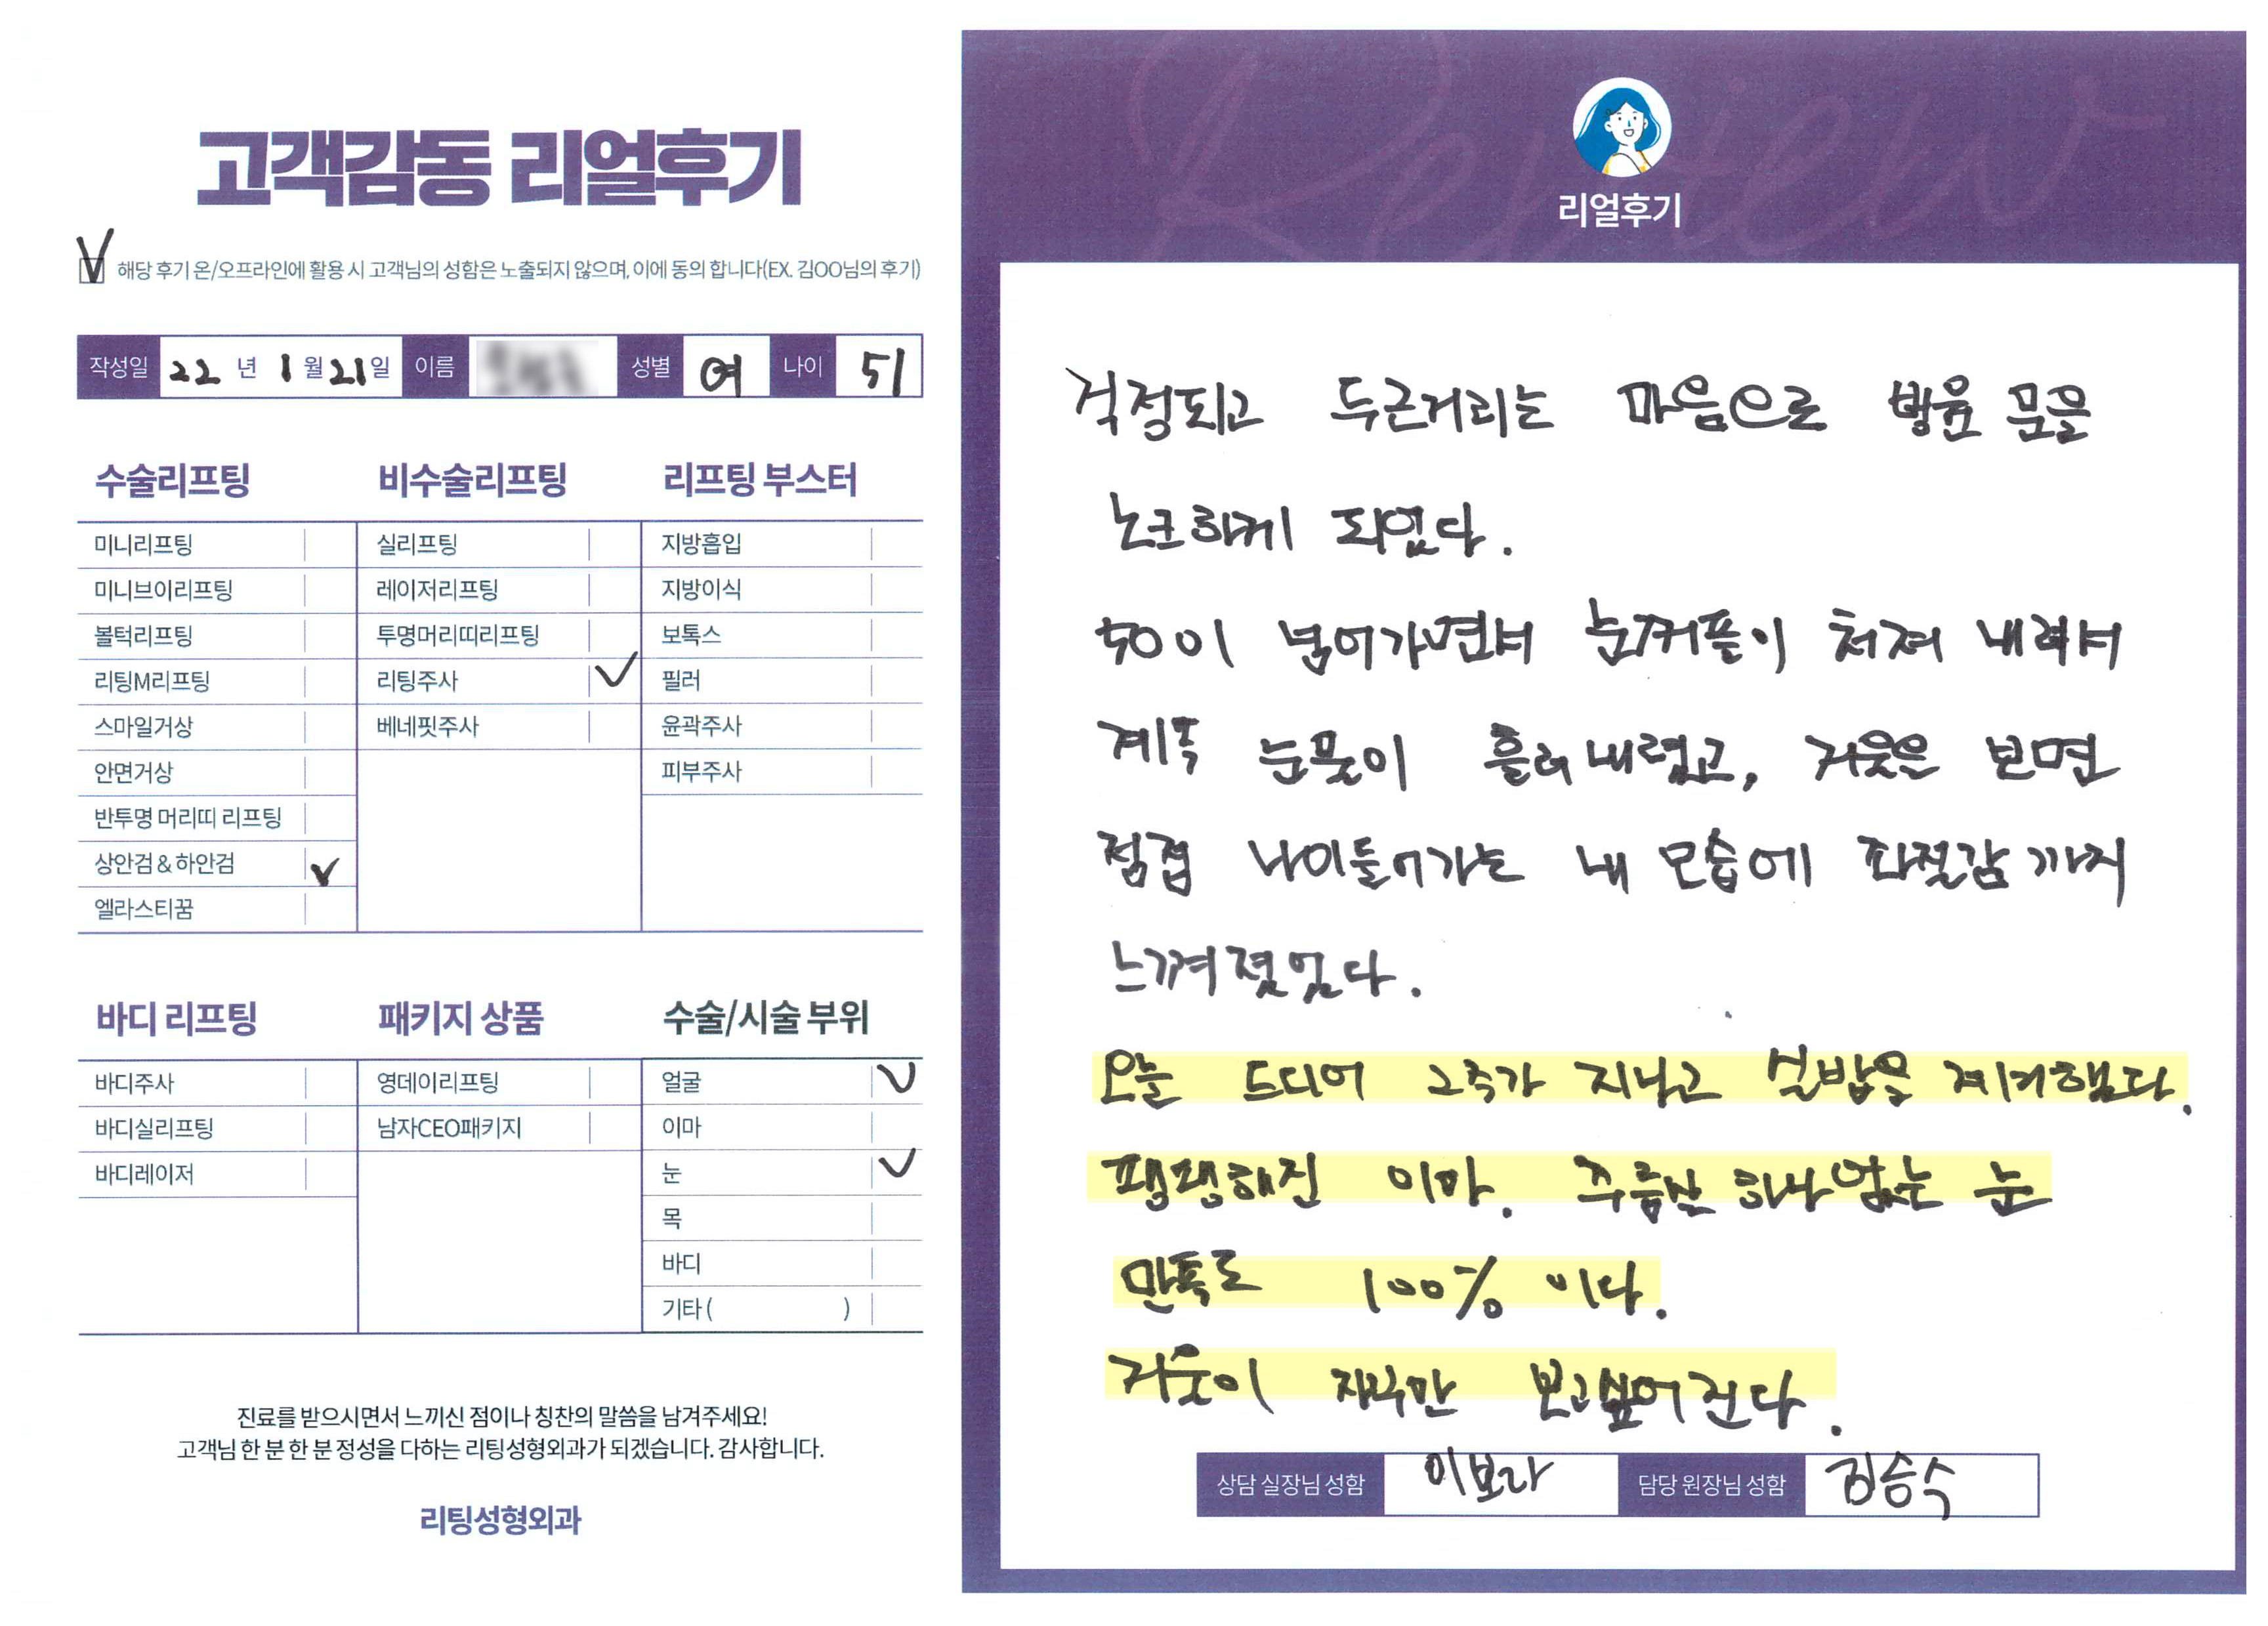 고객감동 리얼후기
해당 후기 온/오프라인에 활용 시 고객님의 성함은 노출되지 않으며, 이에 동의 합니다(EX. 김OO님의 후기)
작성일 22 년 1 월 21 일 이름 성별 여 나이 51
수술리프팅
미니리프팅
미니브이리프팅
볼턱리프팅
리팅M리프팅
스마일거상
안면거상
반투명 머리띠 리프팅
상안검 & 하안검
엘라스티꿈
비수술리프팅
실리프팅
레이저리프팅
투명머리띠리프팅
리팅주사
베네핏주사
리프팅 부스터
지방흡입
지방이식
보톡스
필러
윤곽주사
피부주사
바디 리프팅
바디주사
바디실리프팅
바디레이저
패키지 상품
영데이리프팅
남자CEO패키지
수술/시술 부위
얼굴
이마
눈
목
바디
기타 ( )
진료를 받으시면서 느끼신 점이나 칭찬의 말씀을 남겨주세요!
고객님 한 분 한 분 정성을 다하는 리팅성형외과가 되겠습니다. 감사합니다.
리팅성형외과
Review
리얼후기
걱정되고 두근거리는 마음으로 병원 문을
노크하게 되었다.
50이 넘어가면서 눈꺼풀이 처져 내려서
계속 눈물이 흘러내렸고, 거울을 보면
점점 나이들어가는 내 모습에 좌절감까지
느껴졌었다.
오늘 드디어 2주가 지나고 실밥을 제거했다.
팽팽해진 이마. 주름살 하나 없는 눈
만족도 100% 이다.
거울이 자꾸만 보고싶어진다.
상담 실장님 성함 이보라 담당 원장님 성함 김승수